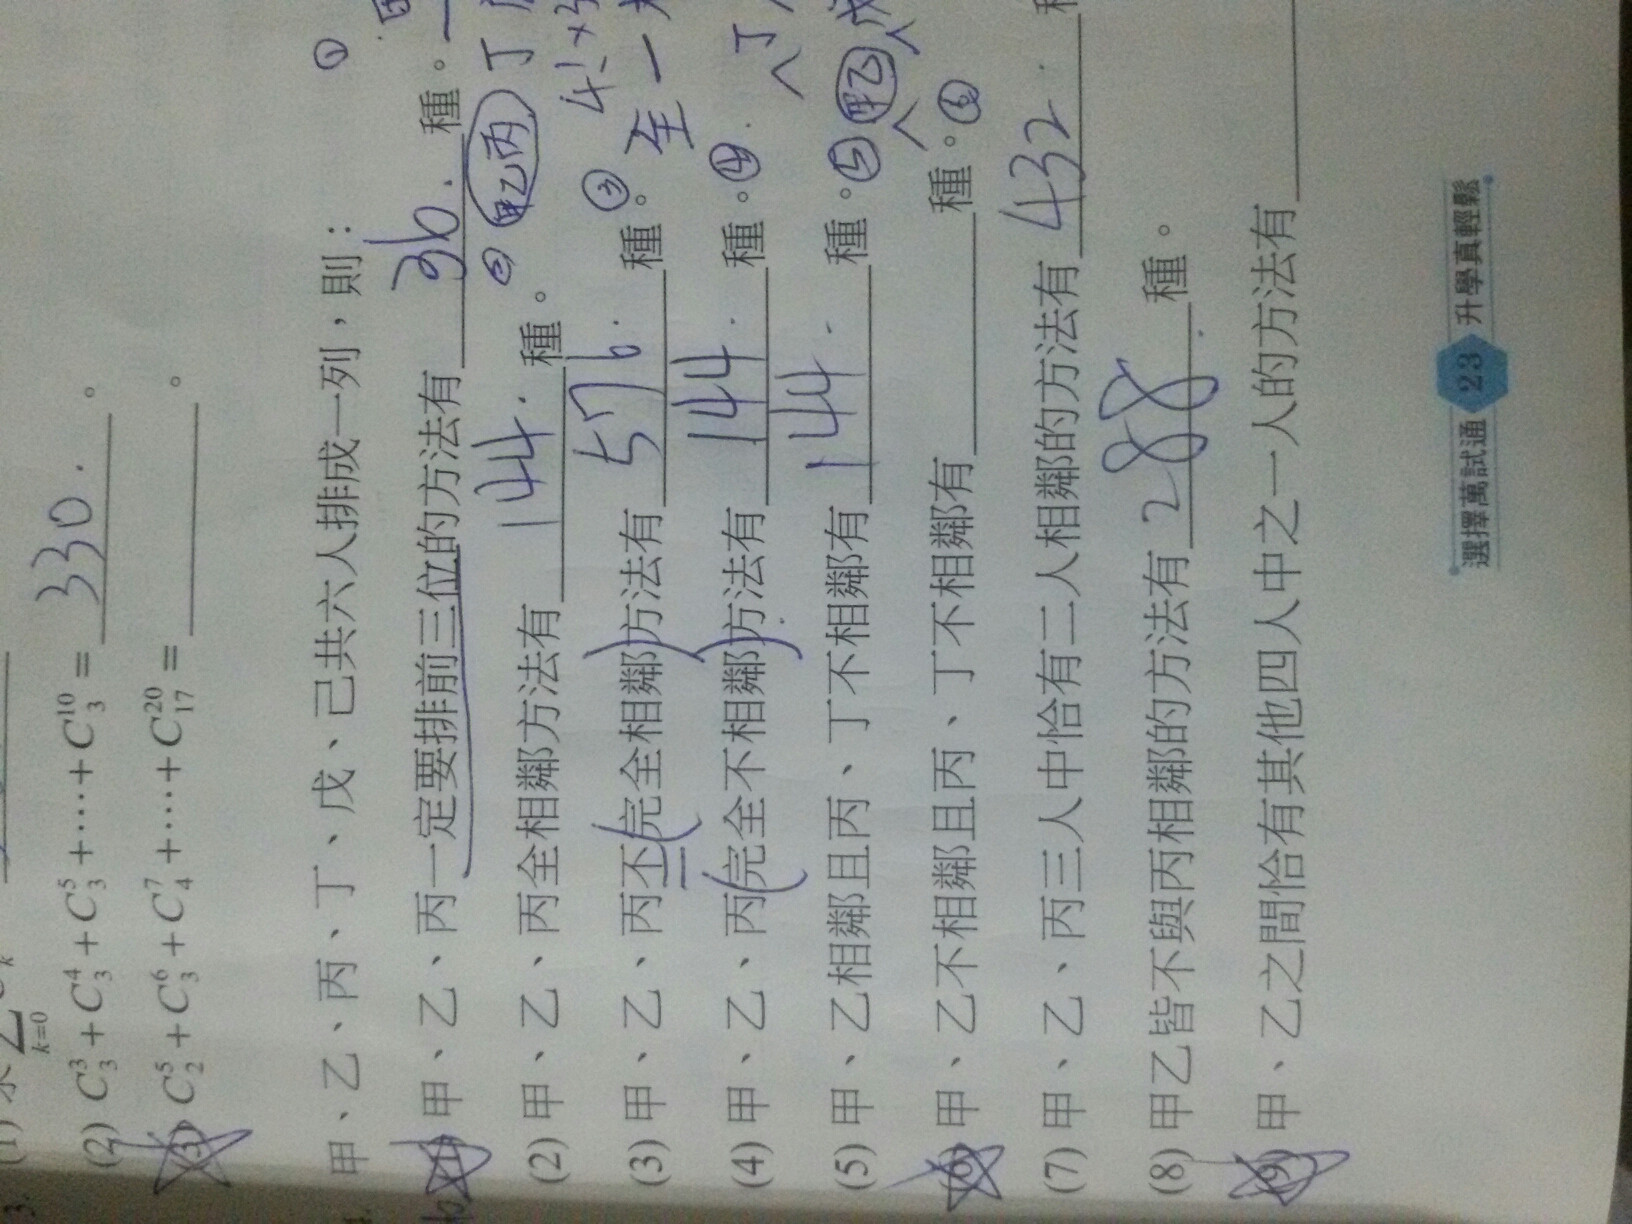 k=0
(2) C³₃ + C⁴₃ + C⁵₃ + …… + C¹⁰₃ = 330 。
(3) C⁵₂ + C⁶₃ + C⁷₄ + …… + C²⁰₁₇ = 。
甲、乙、丙、丁、戊、己共六人排成一列，則： ①
(1) 甲、乙、丙一定要排前三位的方法有 36 種。
② 甲乙丙 丁
(2) 甲、乙、丙全相鄰方法有 144 種。
(3) 甲、乙、丙不完全相鄰方法有 576 種。 ③ 至一
(4) 甲、乙、丙完全不相鄰方法有 144 種。 ④
(5) 甲、乙相鄰且丙、丁不相鄰有 144 種。 ⑤ 甲乙
(6) 甲、乙不相鄰且丙、丁不相鄰有 種。 ⑥
(7) 甲、乙、丙三人中恰有二人相鄰的方法有 432
(8) 甲乙皆不與丙相鄰的方法有 288 種。
(9) 甲、乙之間恰有其他四人中之一人的方法有
選擇萬試通 23 升學真輕鬆